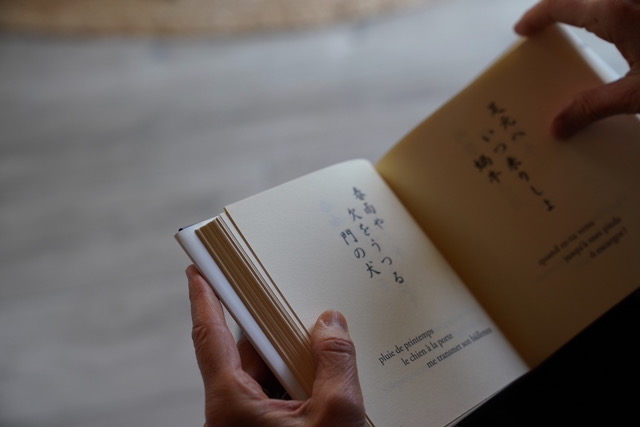 春雨や
欠をうつる
門の犬
pluie de printemps
le chien à la porte
me transmet son bâillement
足元へ
いつ来りしよ
蝸牛
quand es-tu venu
jusqu'à mes pieds
ô escargot ?